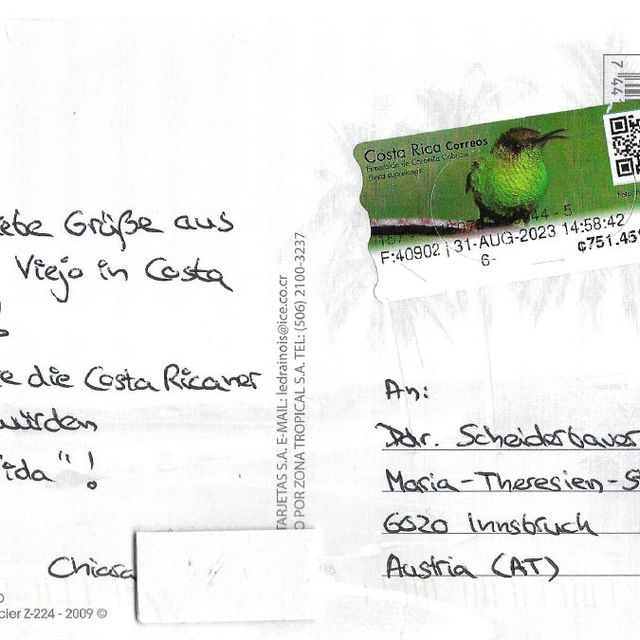 ebe Grüße aus
Viejo in Costa
e die Costa Ricaner
würden
ida"!
Chiara
cier Z-224 - 2009 ©
TARJETAS S.A. E-MAIL: ledrainois@ice.co.cr
O POR ZONA TROPICAL S.A. TEL: (506) 2100-3237
Costa Rica Correos
Esmeralda de Coronita Cobriza
Elvira cupreiceps
F:40902 | 31-AUG-2023 14:58:42
6- ¢751.45
An:
Ddr. Scheiderbauer
Maria-Theresien-S
6020 Innsbruck
Austria (AT)